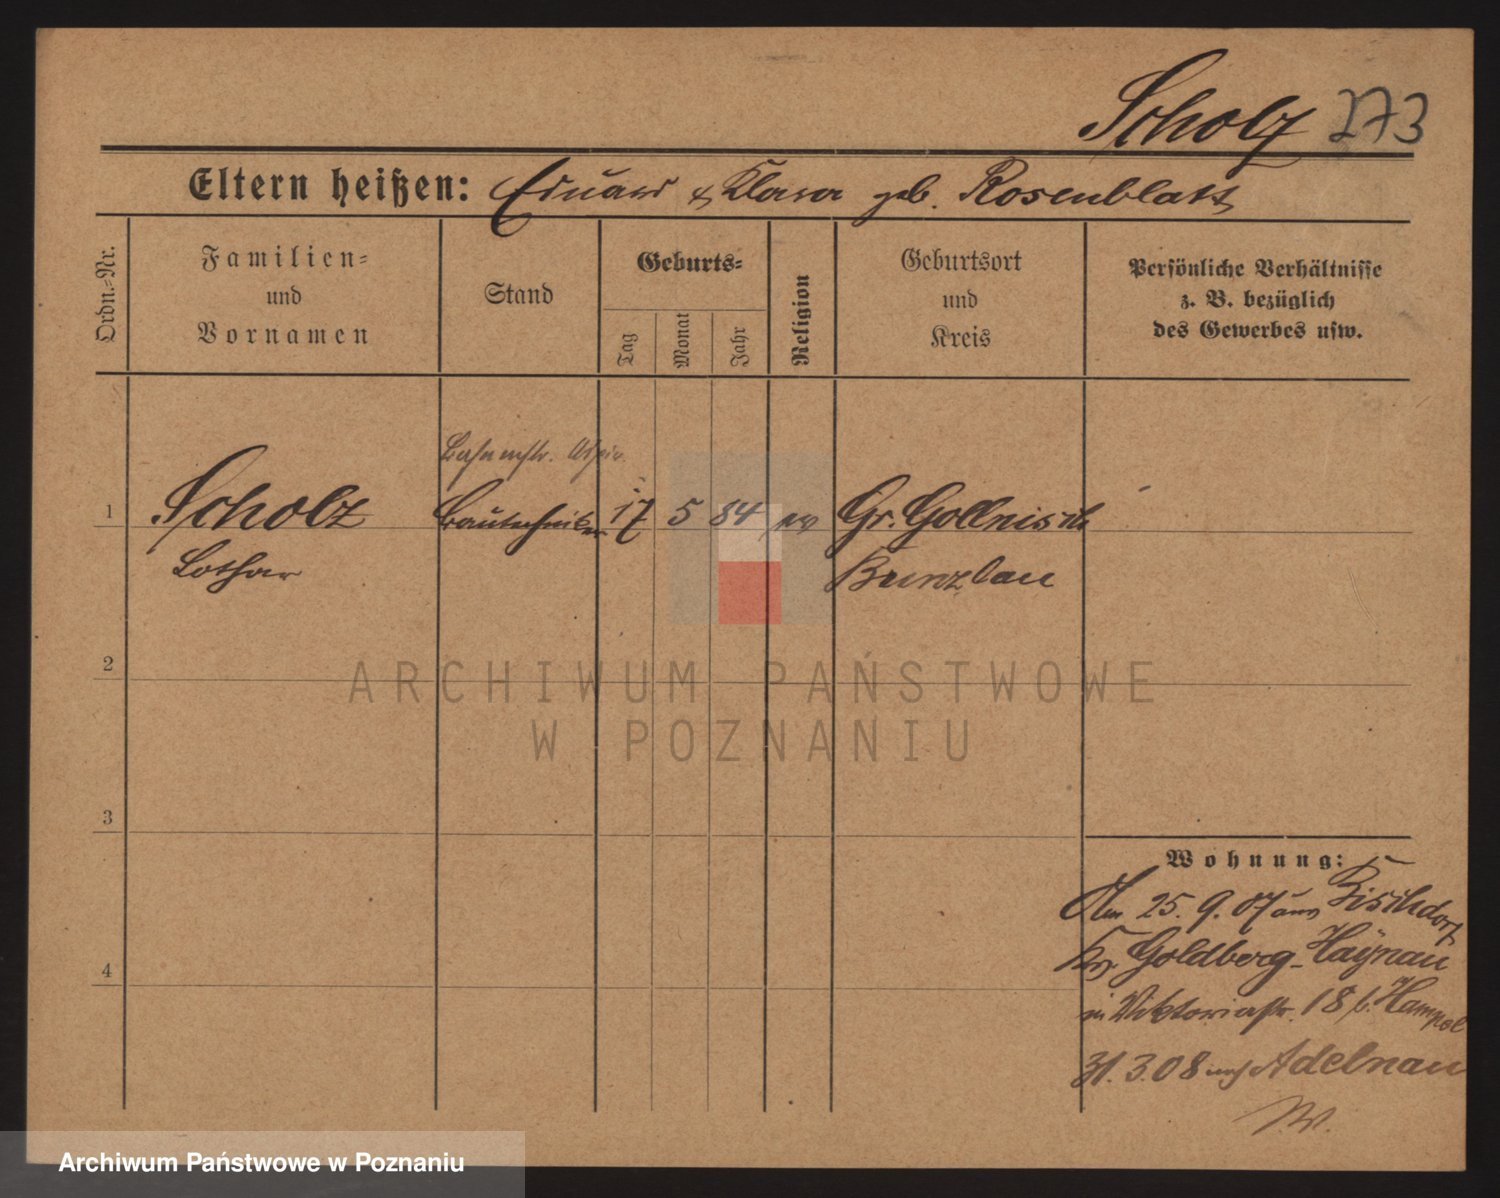 Scholz 273
Eltern heißen: Eduard & Klara geb. Rosenblatt
Ordn.-Nr.
Familien-
und
Vornamen
Stand
Geburts-
Tag
Monat
Jahr
Religion
Geburtsort
und
Kreis
Persönliche Verhältnisse
z. B. bezüglich
des Gewerbes usw.
Bahnmstr. Aspir.
1 Scholz Bautechniker 17 5 84 ev Gr. Gollnisch
Lothar Bunzlau
2
ARCHIWUM PAŃSTWOWE
W POZNANIU
3
Wohnung:
Am 25. 9. 07 aus Bischdorf
Kr. Goldberg-Haynau
in Viktoriastr. 18 b. Hampel
4
31. 3. 08 nach Adelnau
W.
Archiwum Państwowe w Poznaniu